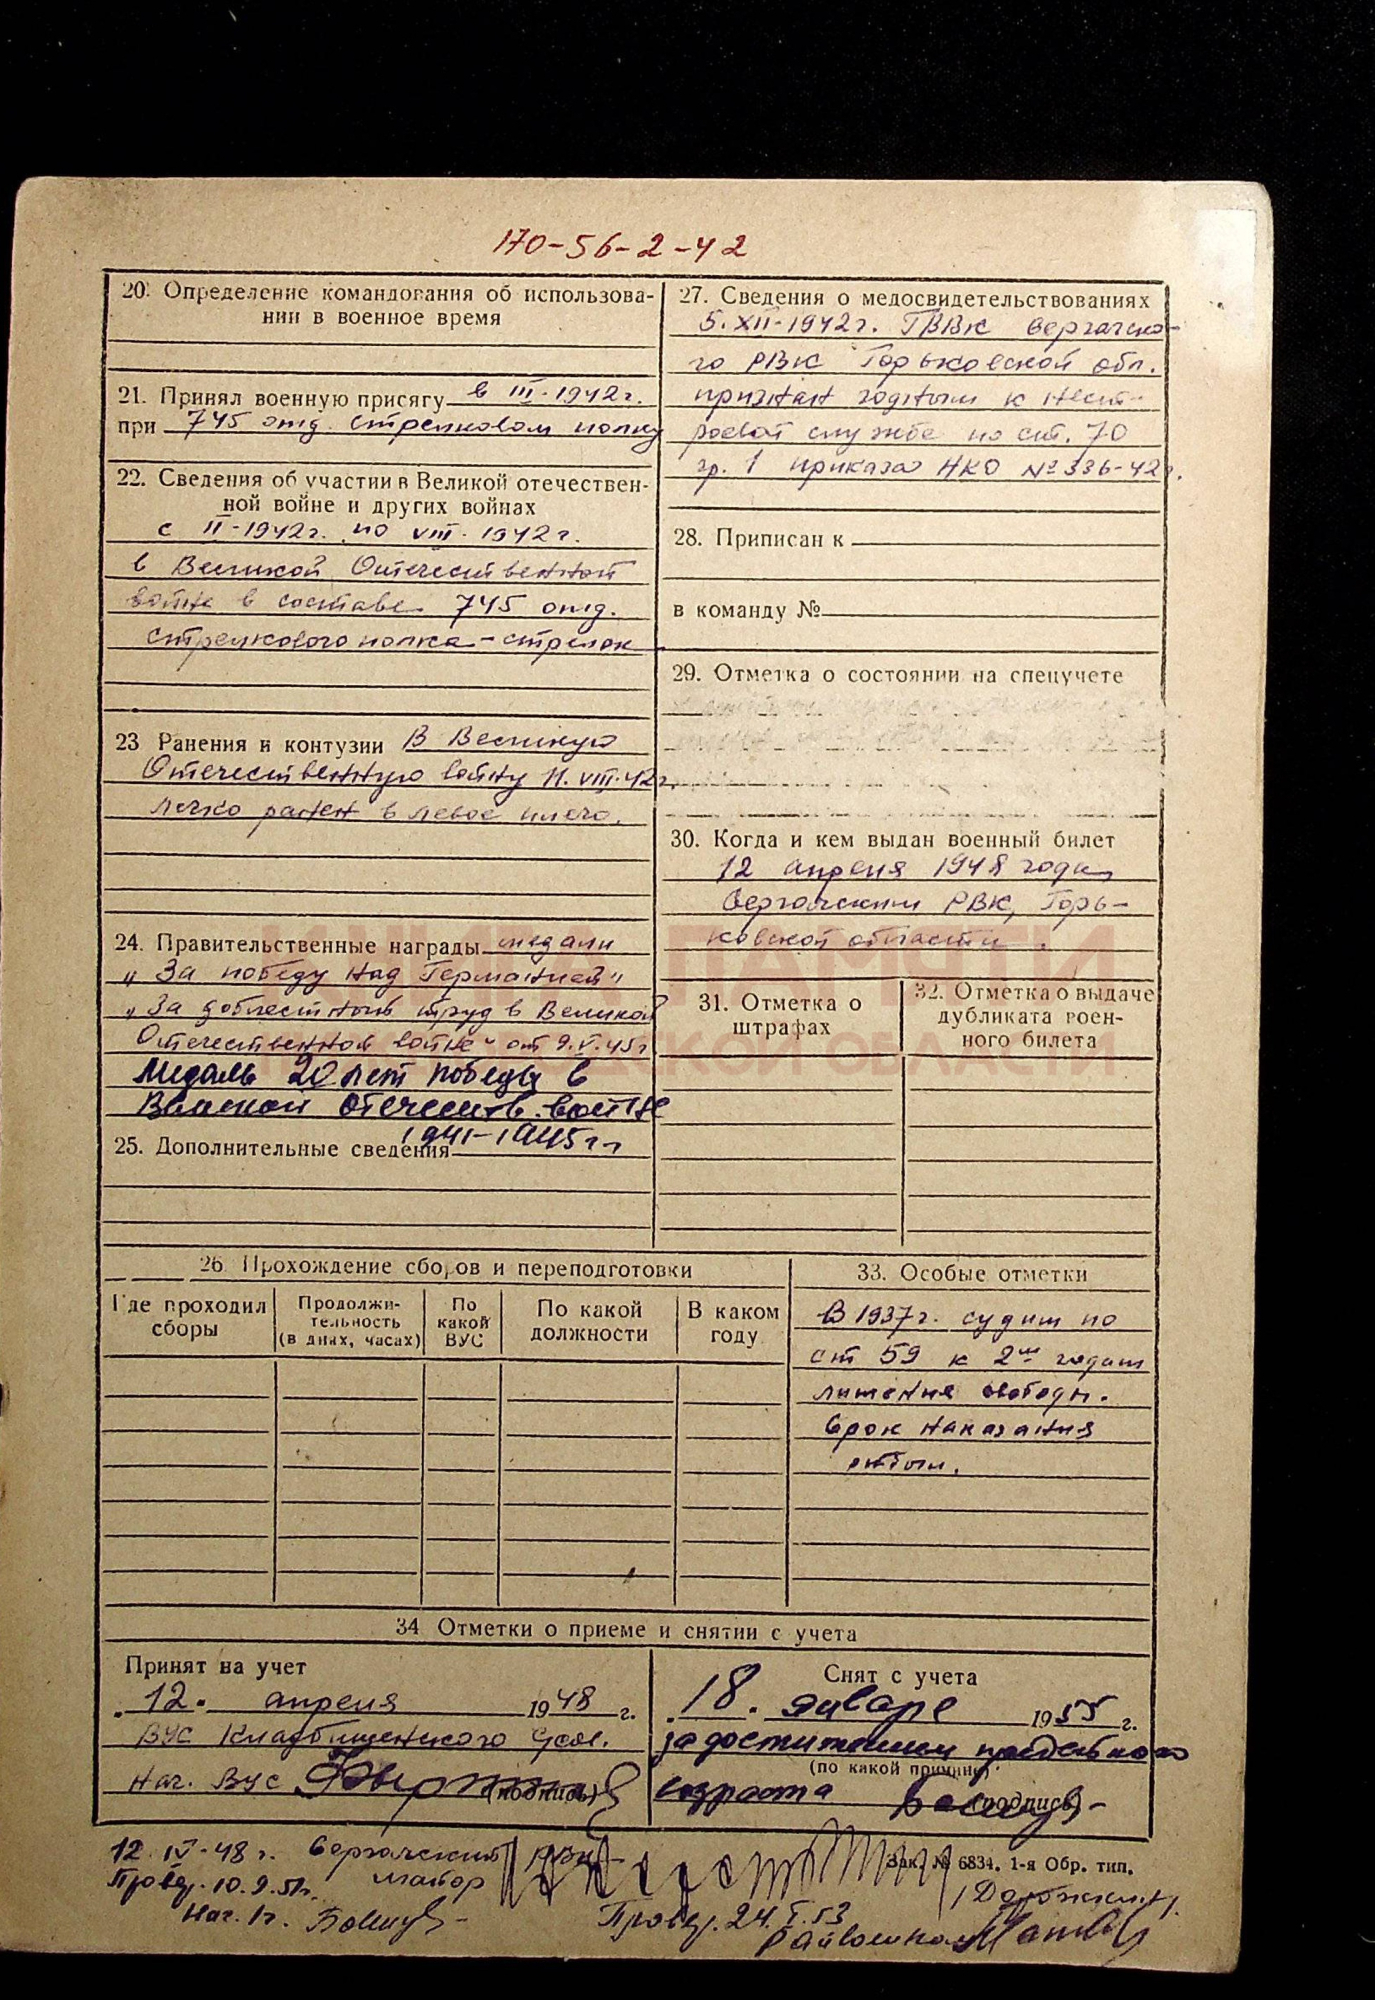 170-56-2-42
20. Определение командования об использова-
нии в военное время
21. Принял военную присягу в III-1942г.
при 745 отд. стрелковом полку
22. Сведения об участии в Великой отечествен-
ной войне и других войнах
с II-1942г. по VIII-1942г.
в Великой Отечественной
войне в составе 745 отд.
стрелкового полка-стрелок
23 Ранения и контузии В Великую
Отечественную войну 11.VIII.42г.
легко ранен в левое плечо.
24. Правительственные награды медали
„За победу над Германией"
„За доблестный труд в Великой
Отечественной войне" от 9.V.45г
Медаль 20 лет победы в
Великой Отечеств. войне
1941-1945гг
25. Дополнительные сведения
27. Сведения о медосвидетельствованиях
5.XII-1942г. ГВВК Сергачско-
го РВК Горьковской обл.
признан годным к нест-
роевой службе по ст. 70
гр. 1 приказа НКО №336-42г.
28. Приписан к
в команду №
29. Отметка о состоянии на спецучете
30. Когда и кем выдан военный билет
12 апреля 1948 года
Сергачским РВК, Горь-
ковской области.
31. Отметка о
штрафах
32. Отметка о выдаче
дубликата воен-
ного билета
КНИГА ПАМЯТИ
НИЖЕГОРОДСКОЙ ОБЛАСТИ
26. Прохождение сборов и переподготовки
Где проходил
сборы
Продолжи-
тельность
(в днях, часах)
По
какой
ВУС
По какой
должности
В каком
году
33. Особые отметки
В 1937г. судим по
ст 59 к 2м годам
лишения свободы.
Срок наказания
отбыл.
34 Отметки о приеме и снятии с учета
Принят на учет
12. апреля 1948 г.
ВУС Кладбищенского
Нач. ВУС (подпись)
Снят с учета
18. январе 1955 г.
за достижением предельного
(по какой причине)
возраста (подпись)
12.IV-48г. Сергачский РВК
майор
Зак. № 6834. 1-я Обр. тип.
/Дорожкин/.
Провер. 10.9.51г.
Нач. 1ч.
Провер. 24.I.53
Райвоенком